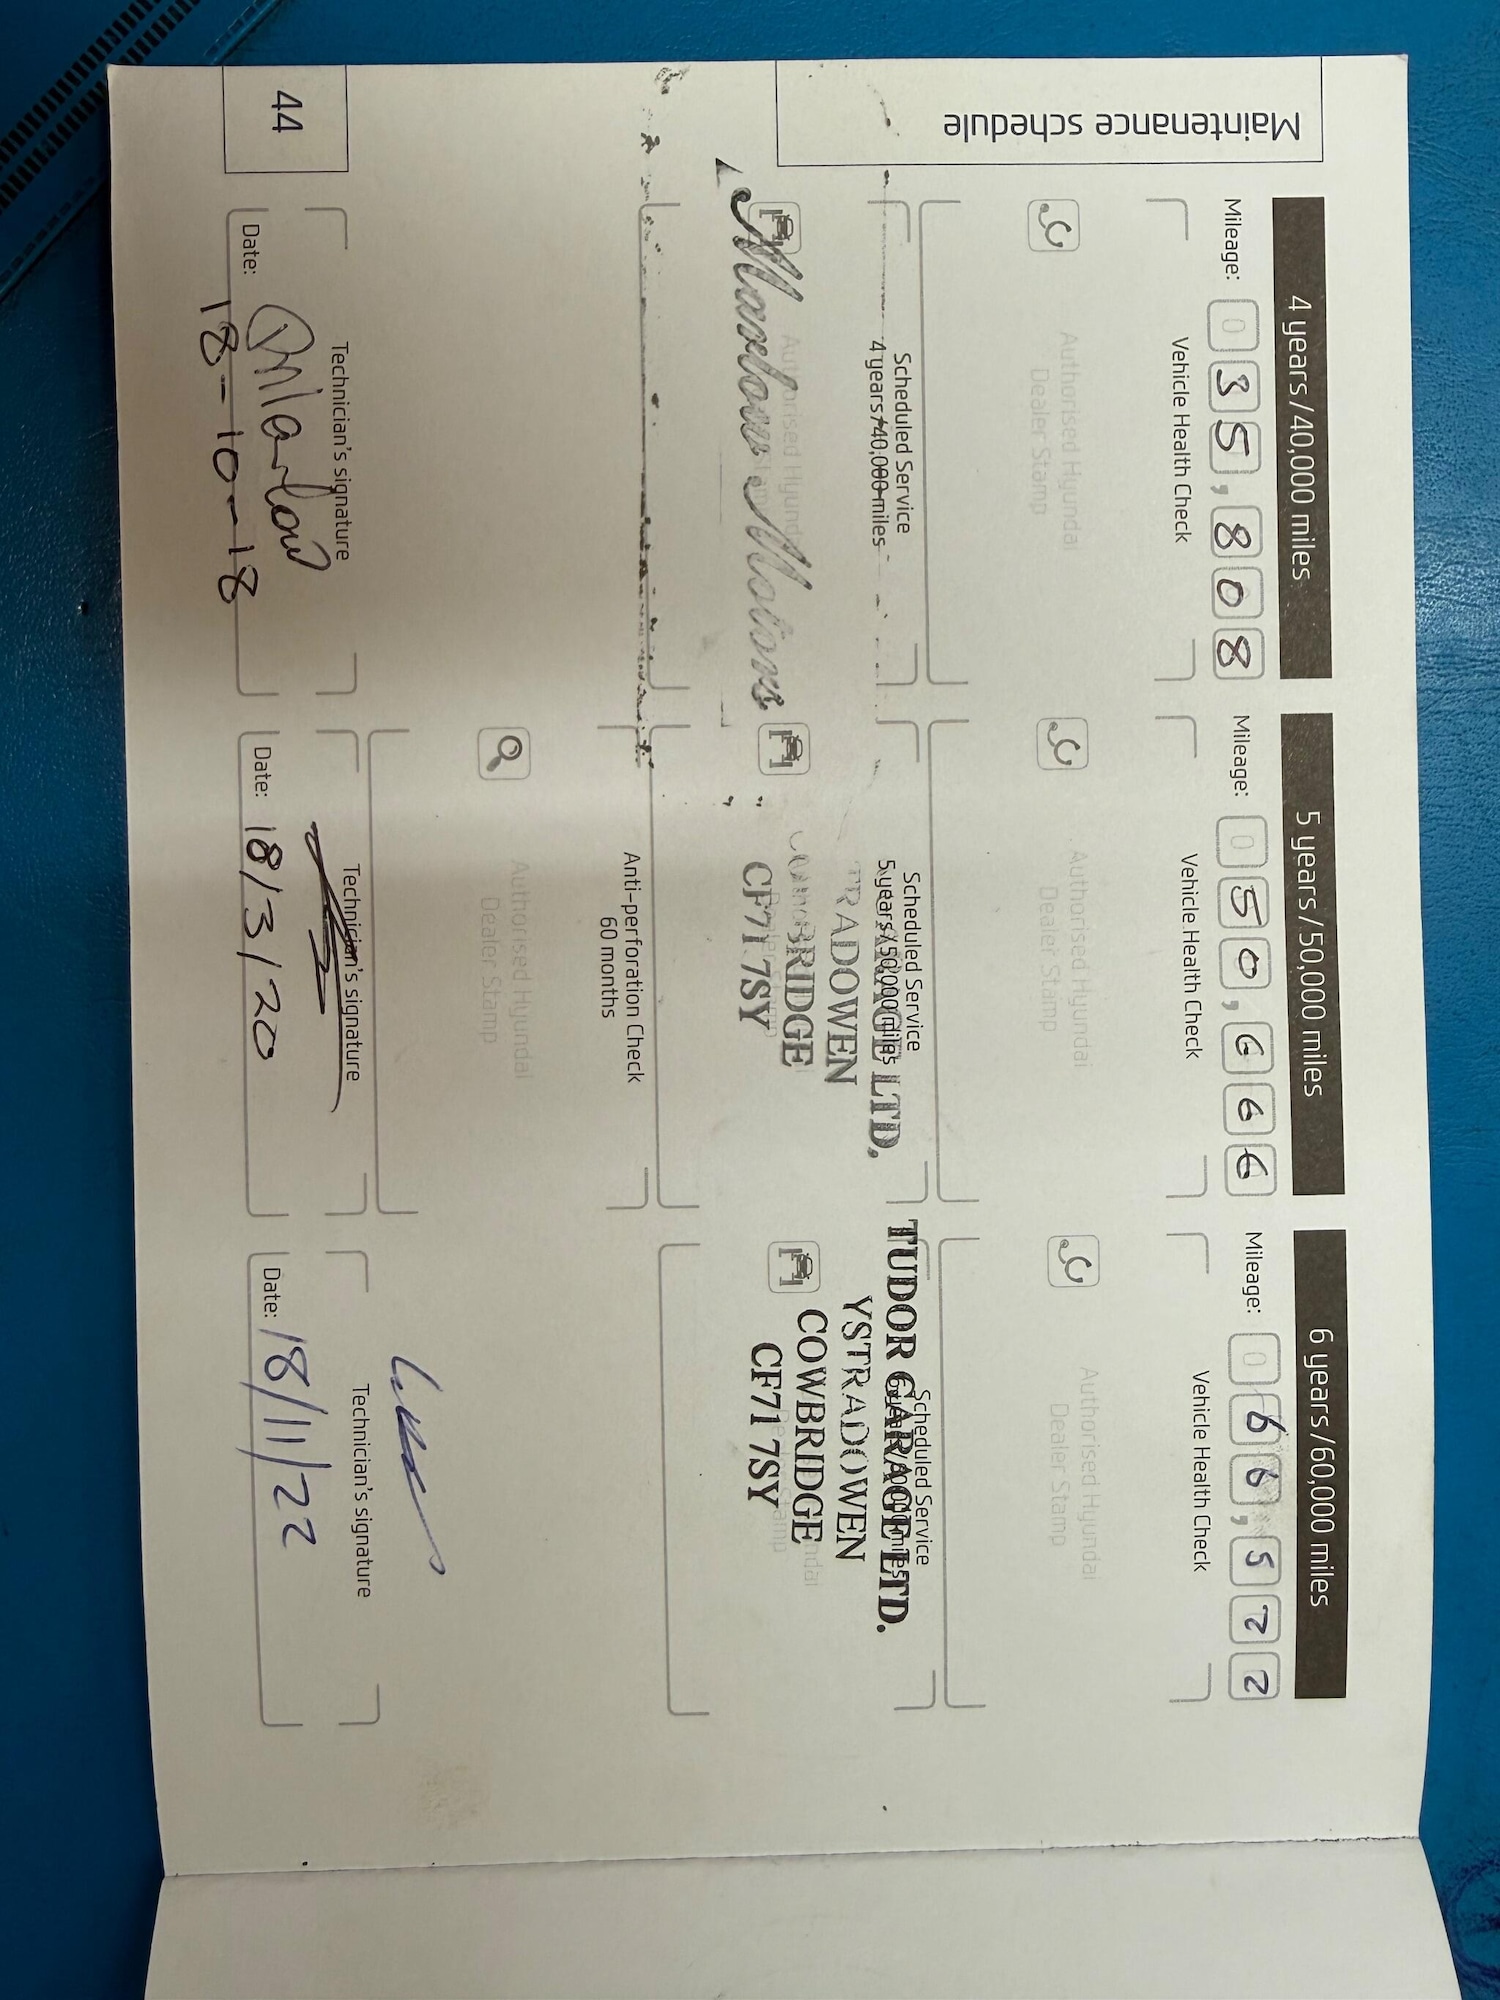 Maintenance schedule
4 years/40,000 miles
Mileage: 0 3 5 , 8 0 8
Vehicle Health Check
Authorised Hyundai
Dealer Stamp
Scheduled Service
4 years/40,000 miles
Authorised Hyundai
Marlow Motors
Technician's signature
Date: 18-10-18
5 years/50,000 miles
Mileage: 0 5 0 , 6 6 6
Vehicle Health Check
Authorised Hyundai
Dealer Stamp
Scheduled Service
5 years/50,000 miles
GARAGE LTD.
TRADOWEN
BRIDGE
CF71 7SY
Anti-perforation Check
60 months
Authorised Hyundai
Dealer Stamp
Technician's signature
Date: 18/3/20
6 years/60,000 miles
Mileage: 0 6 6 , 5 2 2
Vehicle Health Check
Authorised Hyundai
Dealer Stamp
Scheduled Service
TUDOR GARAGE LTD.
YSTRADOWEN
COWBRIDGE
CF71 7SY
Technician's signature
Date: 18/11/22
44